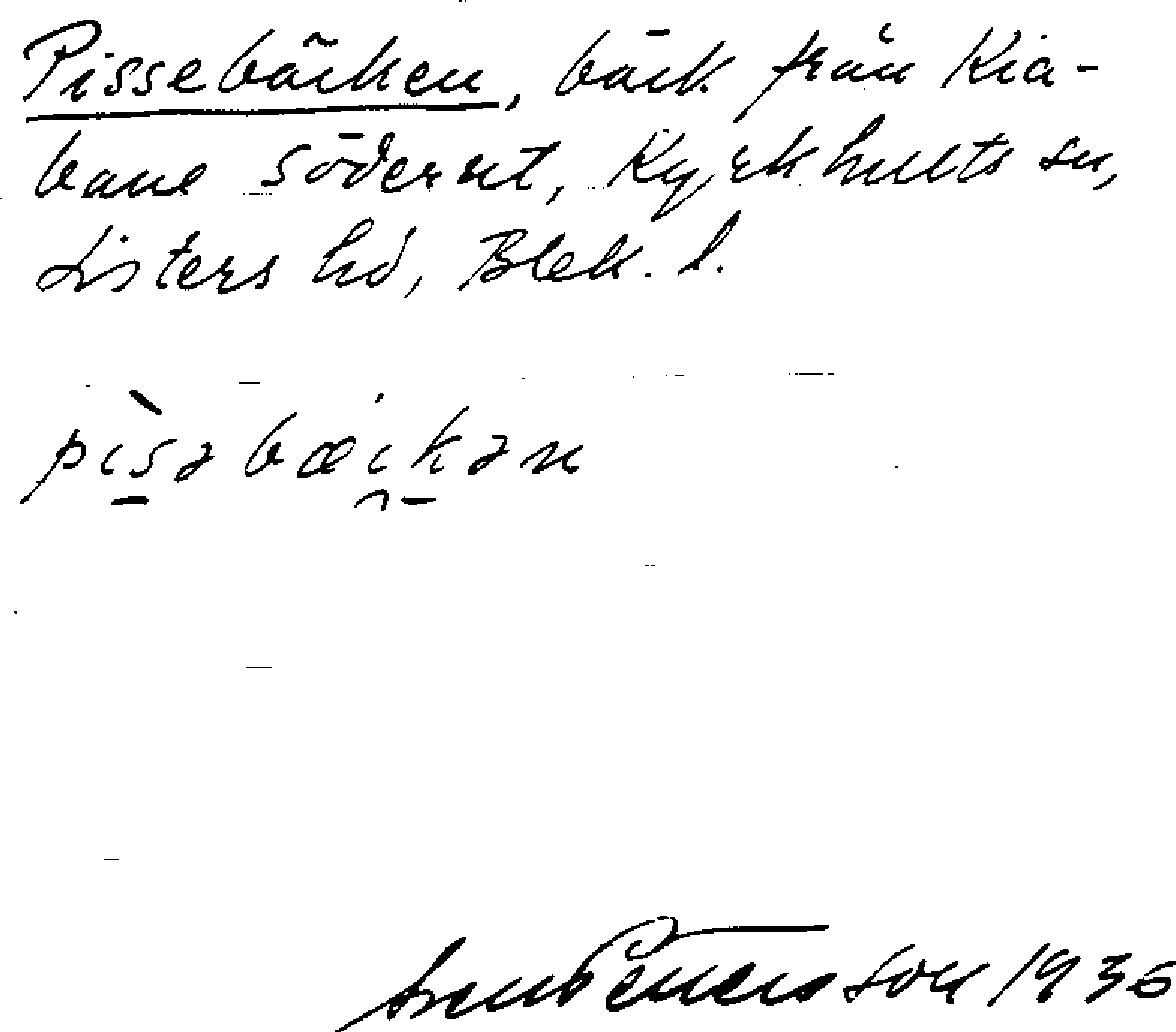 Pissebäcken, bäck från Kia-
bane söderut, Kyrkhults sn,
Listers hd, Blek. l.
pìsəbæi̯kən
Sven Benson 1936